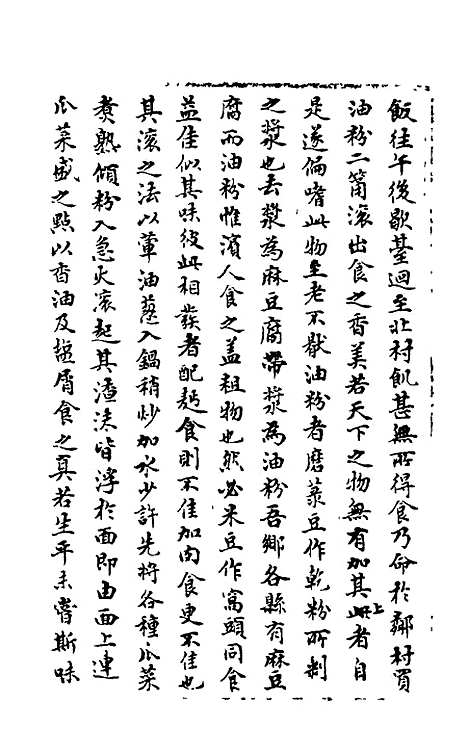 飯往午後歇臺迴至北村飢甚無所得食乃命於鄰村買
油粉二筩滾出食之香美若天下之物無有加其上此者自
是遂偏嗜此物至老不厭油粉者磨菉豆作乾粉所剩
之漿也去漿為麻豆腐帶漿為油粉吾鄉各縣有麻豆
腐而油粉惟濱人食之盖粗物也然必米豆作窩頭同食
益佳似其味彼此相發者配麪食則不佳加肉食更不佳也
其滾之法以葷油葱入鍋稍炒加水少許先將各種瓜菜
煑熟傾粉入急火滾起其渣沫皆浮於面即由面上連
瓜菜盛之點以香油及塩屑食之真若生平未嘗斯味